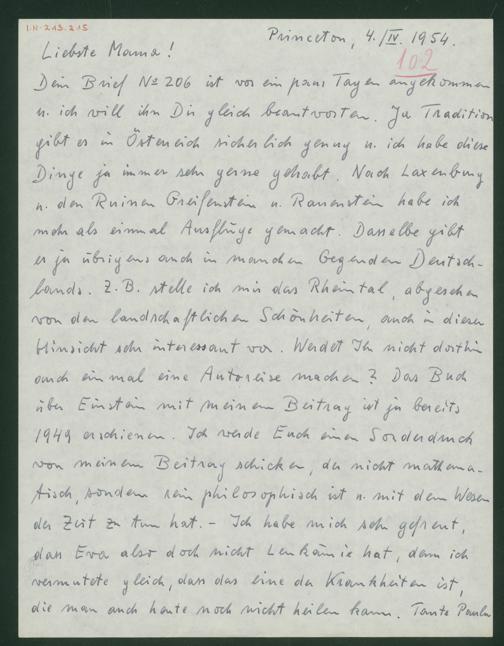 I.N. 213.215
Princeton, 4./IV. 1954.
102
Liebste Mama!
Dein Brief No 206 ist vor ein paar Tagen angekommen
u. ich will ihn Dir gleich beantworten. Ja Tradition
gibt es in Österreich sicherlich genug u. ich habe diese
Dinge ja immer sehr gerne gehabt. Nach Laxenburg
u. den Ruinen Greifenstein u. Rauenstein habe ich
mehr als einmal Ausflüge gemacht. Dasselbe gibt
es ja übrigens auch in manchen Gegenden Deutsch-
lands. Z.B. stelle ich mir das Rheintal, abgesehen
von den landschaftlichen Schönheiten, auch in dieser
Hinsicht sehr interessant vor. Werdet Ihr nicht dorthin
auch einmal eine Autoreise machen? Das Buch
über Einstein mit meinem Beitrag ist ja bereits
1949 erschienen. Ich werde Euch einen Sonderdruck
von meinem Beitrag schicken, der nicht mathema-
tisch, sondern rein philosophisch ist u. mit dem Wesen
der Zeit zu tun hat. – Ich habe mich sehr gefreut,
dass Eva also doch nicht Leukämie hat, denn ich
vermutete gleich, dass das eine der Krankheiten ist,
die man auch heute noch nicht heilen kann. Tante Paula